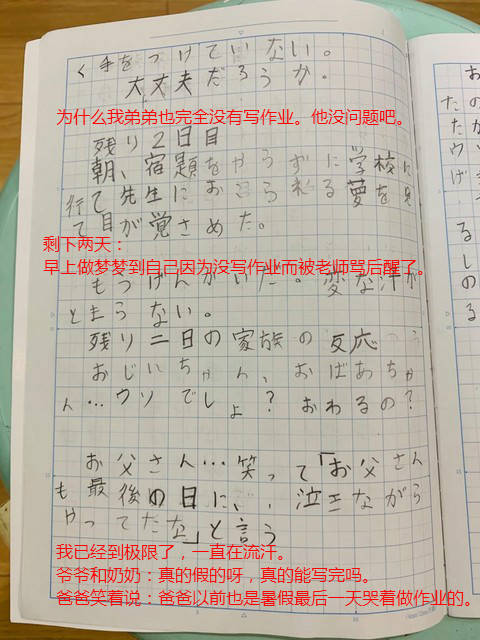 く手をつけていない。
大丈夫だろうか。
为什么我弟弟也完全没有写作业。他没问题吧。
残り2日目
朝、宿題をやらずに学校に
行て先生におこられる夢を見
て目が覚さめた。
剩下两天：
早上做梦梦到自己因为没写作业而被老师骂后醒了。
もうげんかいだ。変な汗が
とまらない。
残り二日の家族の反応
おじいちゃん、おばあちゃ
ん…ウソでしょ？おわるの？
お父さん…笑って「お父さん
も最後の日に、泣きながら
やってたな」と言う
我已经到极限了，一直在流汗。
爷爷和奶奶：真的假的呀，真的能写完吗。
爸爸笑着说：爸爸以前也是暑假最后一天哭着做作业的。